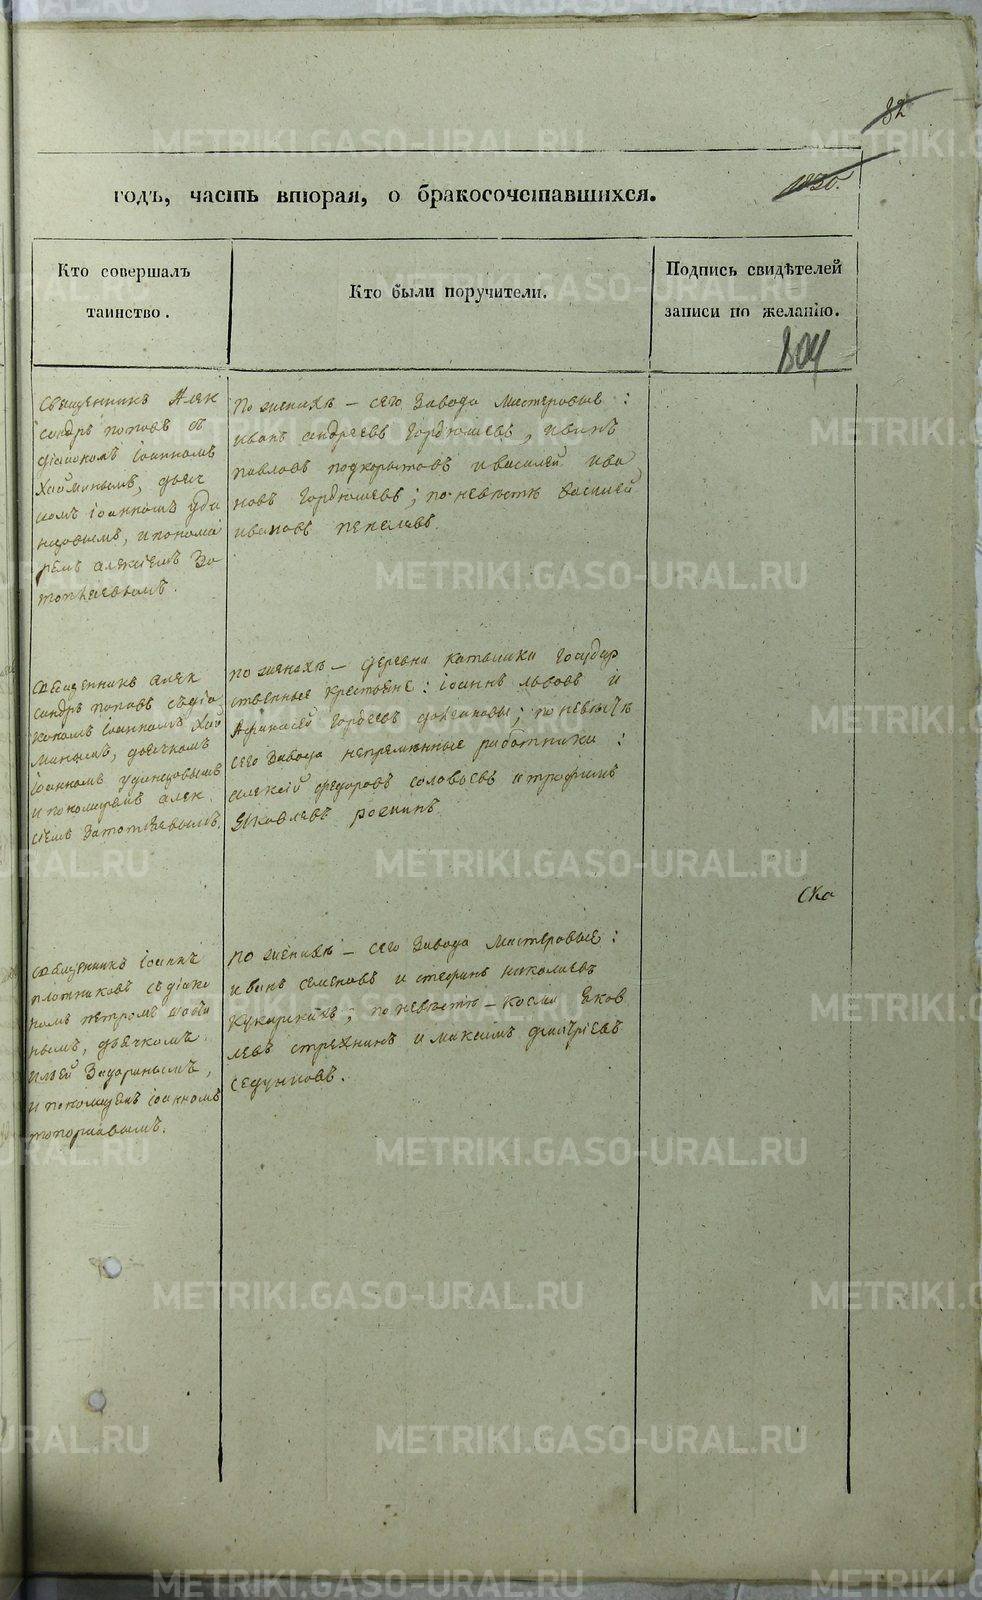 82
1820.
годъ, часть вторая, о бракосочетавшихся.
Кто совершалъ
таинство.
Кто были поручители.
Подпись свидѣтелей
записи по желанію.
804
Священникъ Алек
сандръ поповъ съ
діакономъ іоанномъ
Хайминымъ, дьяч
комъ іоанномъ Уди
нцовымъ, и понома
ремъ алексіемъ За
топляевымъ.
По женихѣ — сего Завода Мастеровые:
иванъ андреевъ Гордюшевъ, иванъ
павловъ подкорытовъ и василей ива
новъ Гордюшевъ; по невѣстѣ василей
ивановъ пепеляевъ.
Священникъ алек
сандръ поповъ съ діа
кономъ іоанномъ Хай
минымъ, дьячкомъ
іоанномъ удинцовымъ
и пономаремъ алек
сіемъ Затопляевымъ.
по женихѣ — деревни катышки Государ
ственные крестьяне: іоаннъ львовъ и
Афанасей Гордѣевъ; по невѣстѣ
сего Завода непремѣнные работники:
алексѣй федоровъ соловьевъ и трофимъ
Яковлевъ
Ска
священникъ іоаннъ
плотниковъ съ діако
номъ петромъ
нымъ, дьячкомъ
ильей
и пономаремъ іоанномъ
топорковымъ.
по женихѣ — сего Завода Мастеровые:
иванъ семеновъ и стефанъ николаевъ
Кукарскихъ; по невѣстѣ — косма Яков
левъ стрехнинъ и максимъ дмитріевъ
седуновъ.
METRIKI.GASO-URAL.RU